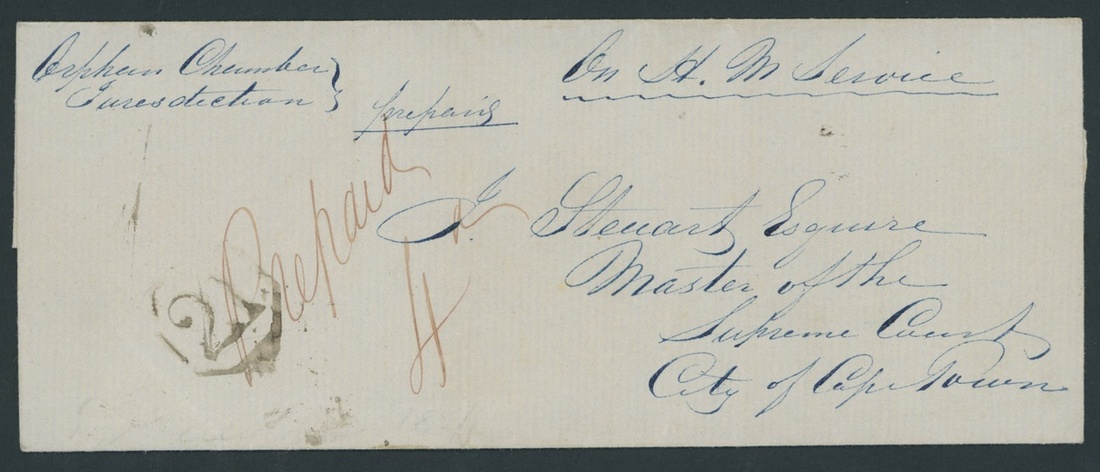 Orphan Chamber
Jurisdiction
On H. M Service
prepaid
Prepaid
4d
J. Steuart Esquire
Master of the
Supreme Court
City of Cape Town
2